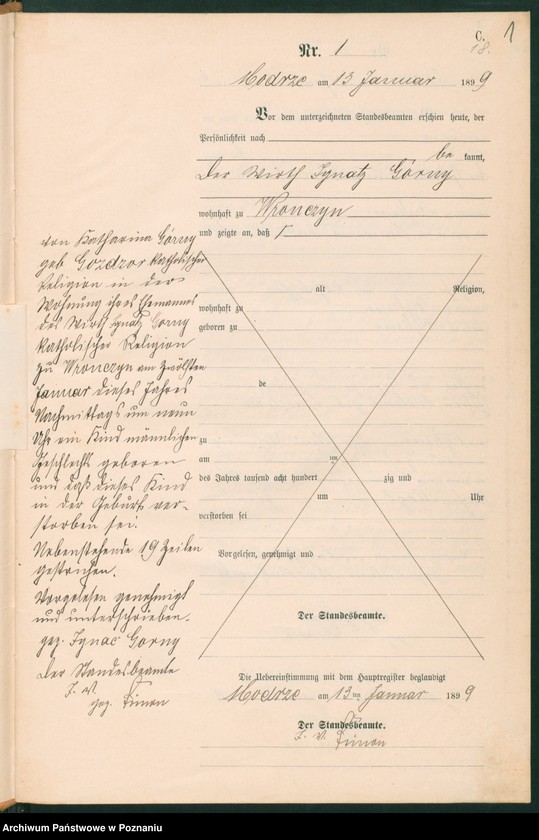 C.
1
18.
Nr. 1
Modrze am 13 Januar 1899
Vor dem unterzeichneten Standesbeamten erschien heute, der
Persönlichkeit nach
be kannt,
der Wirth Ignatz Górny
wohnhaft zu Wronczyn
und zeigte an, daß
von Katharina Górny
geb Gozdzor katholischer
Religion in der
Wohnung ihres Ehemannes
des Wirth Ignatz Gorny
katholischer Religion
zu Wronczyn am zwölften
Januar dieses Jahres
Nachmittags um neun
Uhr ein Kind männlichen
Geschlechts geboren
und daß dieses Kind
in der Geburt ver-
storben sei.
Nebenstehende 19 Zeilen
gestrichen.
Vorgelesen genehmigt
und unterschrieben.
gez. Ignac Gorny
Der Standesbeamte
J. V.
gez. Simon
alt Religion,
wohnhaft zu
geboren zu
de
zu
am um
des Jahres tausend acht hundert zig und
um Uhr
verstorben sei
Vorgelesen, genehmigt und
Der Standesbeamte.
Die Uebereinstimmung mit dem Hauptregister beglaubigt
Modrze am 13ten Januar 1899
Der Standesbeamte.
J. V. Simon
Archiwum Państwowe w Poznaniu